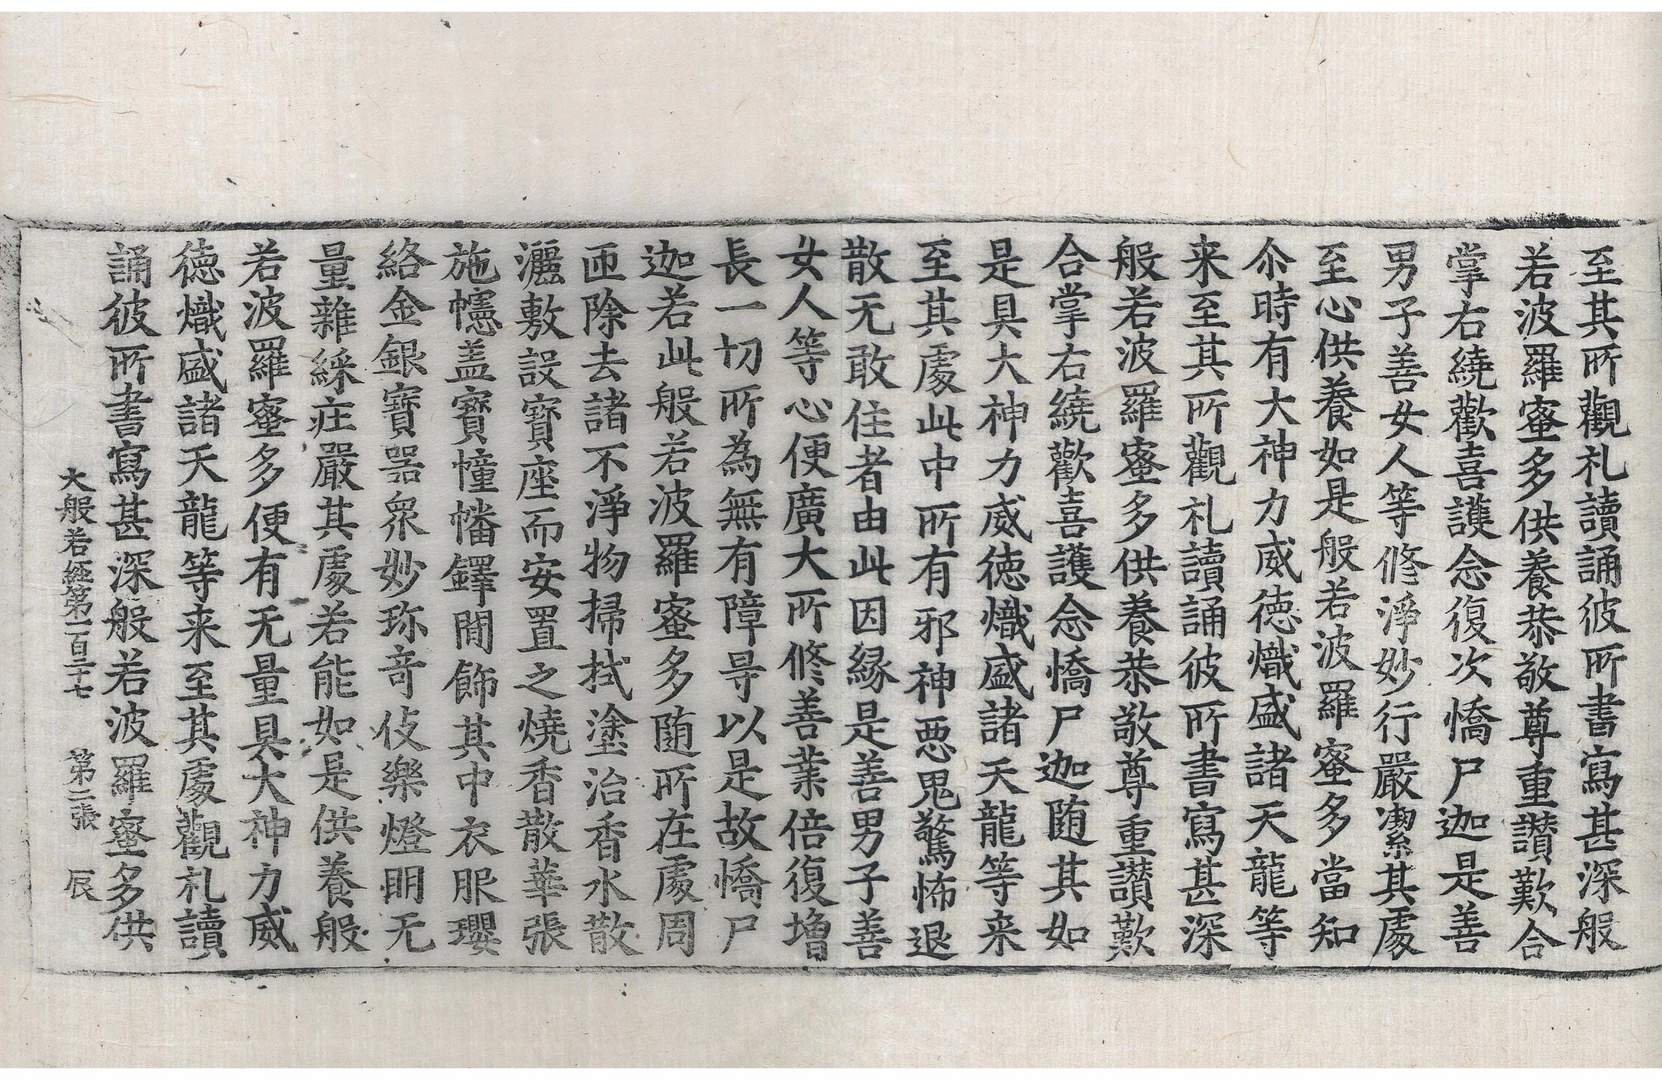 至其所觀礼讀誦彼所書寫甚深般
若波羅蜜多供養恭敬尊重讃歎合
掌右繞歡喜護念復次憍尸迦是善
男子善女人等修淨妙行嚴潔其處
至心供養如是般若波羅蜜多當知
尒時有大神力威徳熾盛諸天龍等
来至其所觀礼讀誦彼所書寫甚深
般若波羅蜜多供養恭敬尊重讃歎
合掌右繞歡喜護念憍尸迦随其如
是具大神力威徳熾盛諸天龍等来
至其處此中所有邪神惡鬼驚怖退
散无敢住者由此因縁是善男子善
女人等心便廣大所修善業倍復增
長一切所為無有障㝵以是故憍尸
迦若此般若波羅蜜多随所在處周
匝除去諸不淨物掃拭塗治香水散
灑敷設寶座而安置之燒香散華張
施幰盖寶幢幡鐸間飾其中衣服瓔
絡金銀寶器衆妙珎竒伎樂燈明无
量雜綵庄嚴其處若能如是供養般
若波羅蜜多便有无量具大神力威
徳熾盛諸天龍等来至其處觀礼讀
誦彼所書寫甚深般若波羅蜜多供
大般若經第一百二十七 第二張 辰